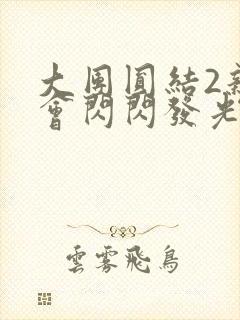 大團圓結2親
會閃閃發光
雲霧飛鳥